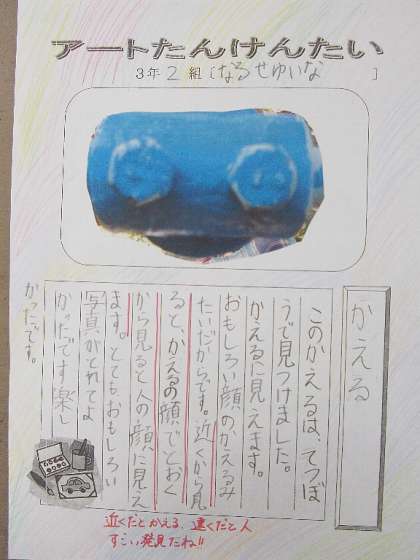 アートたんけんたい
3年 2 組〔なるせゆいな 〕
かえる
このかえるは、てつぼ
うで見つけました。
かえるに見えます。
おもしろい顔のかえるみ
たいだからです。近くから見
ると、かえるの顔でとおく
から見ると人の顔に見え
ます。とてもおもしろい
写真がとれてよ
かったです楽し
かったです。
近くだとかえる、遠くだと人
すごい発見だね!!